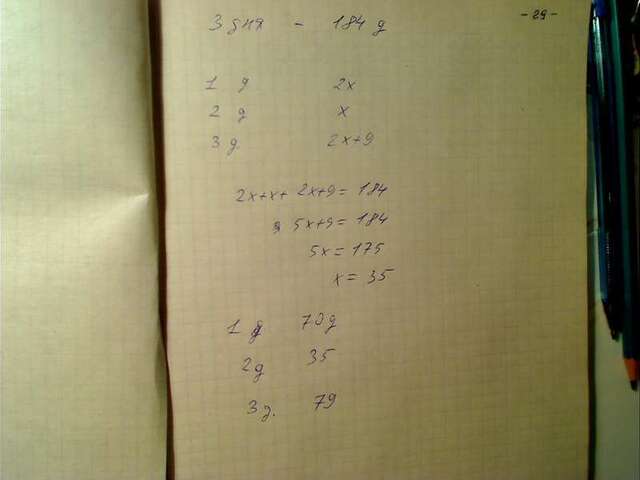 - 29 -
3 дня - 184 д
1 д 2x
2 д x
3 д. 2x+9
2x+x+2x+9=184
5x+9=184
5x=175
x=35
1 д 70 д
2 д 35
3 д. 79